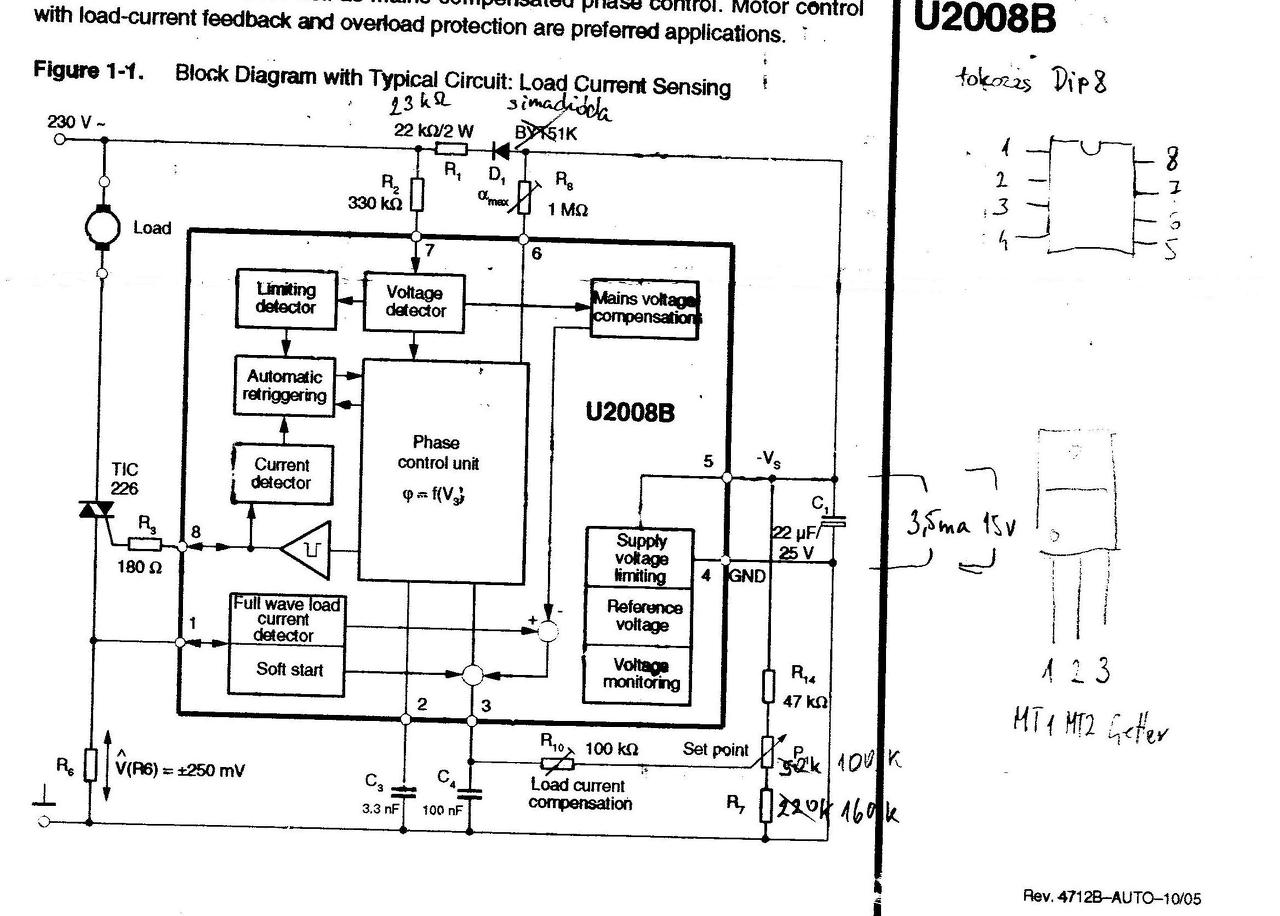 as mains compensated phase control. Motor control
with load-current feedback and overload protection are preferred applications.
U2008B
tokozás Dip8
Figure 1-1. Block Diagram with Typical Circuit: Load Current Sensing
23 kΩ
simadióda
230 V ~
22 kΩ/2 W
BYT51K
R1
D1
R2
330 kΩ
αmax
R8
1 MΩ
Load
7
6
1
2
3
4
8
7
6
5
Limiting
detector
Voltage
detector
Mains voltage
compensation
Automatic
retriggering
U2008B
Phase
control unit
φ = f(V3)
Current
detector
TIC
226
R3
180 Ω
8
5
-VS
C1
22 µF/
25 V
3,5ma 15v
Supply
voltage
limiting
4
GND
Reference
voltage
Voltage
monitoring
Full wave load
current
detector
Soft start
1
+
-
2
3
R14
47 kΩ
1 2 3
MT1 MT2 Getter
R6
V̂(R6) = ±250 mV
C3
3.3 nF
C4
100 nF
R10
100 kΩ
Load current
compensation
Set point
P1
52k 100k
R7
220k 160k
Rev. 4712B–AUTO–10/05